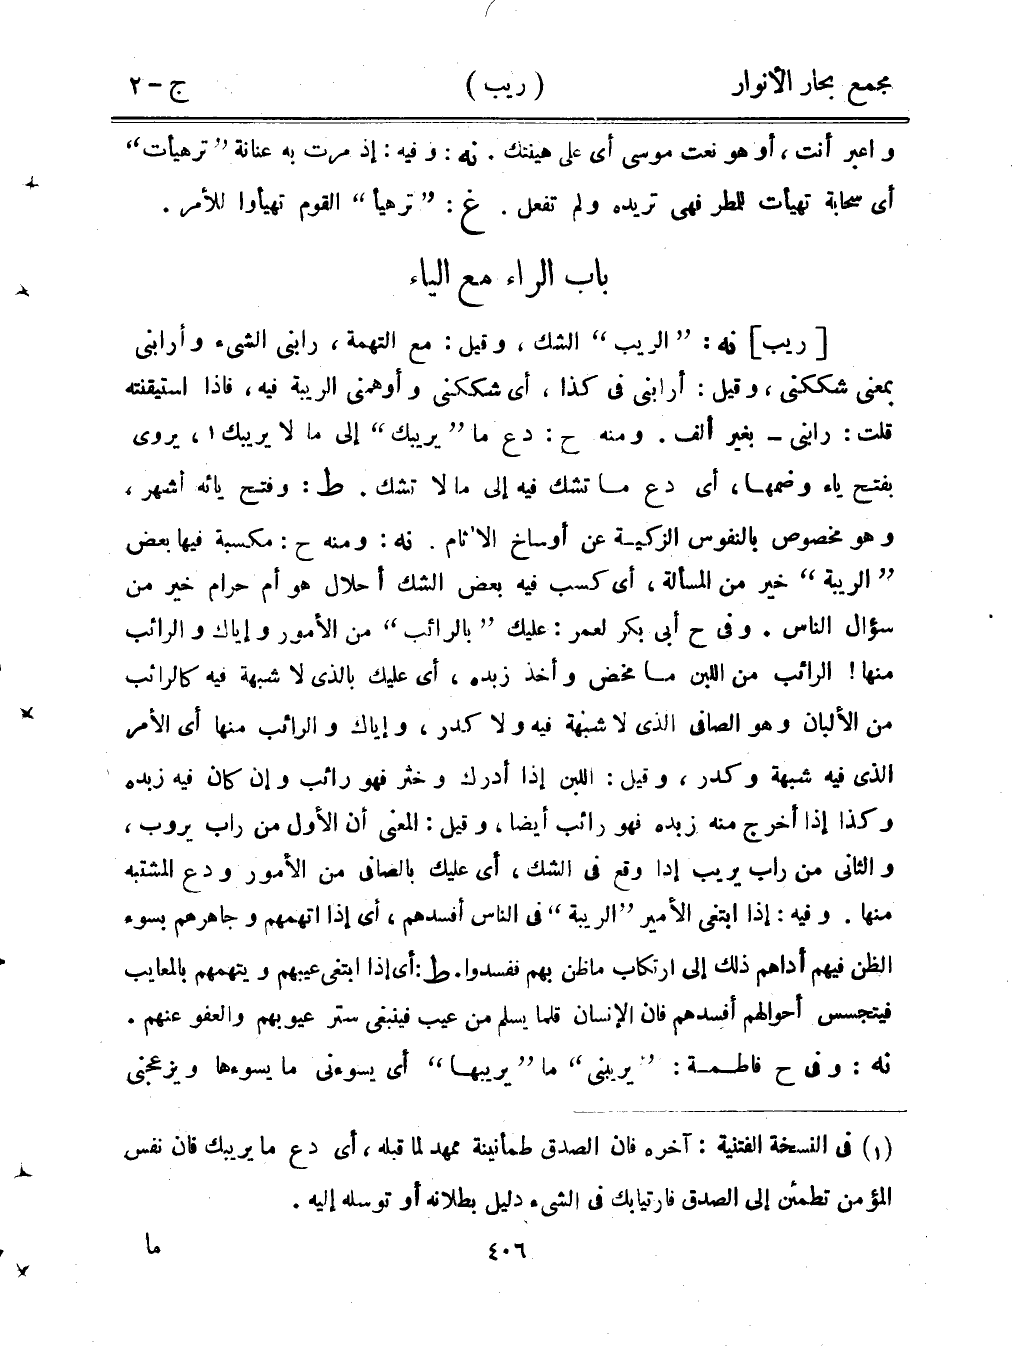 مجمع بحار الأنوار (ريب) ج - ٢
و اعبر أنت ، أو هو نعت موسى أى على هينتك . نه : و فيه : إذ مرت به عنانة ”ترهيأت“
أى سحابة تهيأت للطر فهى تريده ولم تفعل . غ : ”ترهيأ“ القوم تهيأوا للأمر .
باب الراء مع الياء
[ريب] نه : ”الريب“ الشك ، و قيل : مع التهمة ، رابنى الشىء و أرابنى
بمعنى شككنى ، و قيل : أرابنى فى كذا ، أى شككنى و أوهمنى الريبة فيه ، فاذا استيقنته
قلت : رابنى - بغير ألف . و منه ح : دع ما ”يريبك“ إلى ما لا يريبك ١ ، يروى
بفتح ياء و ضمها ، أى دع ما تشك فيه إلى ما لا تشك . ط : و فتح يائه أشهر ،
و هو مخصوص بالنفوس الزكية عن أوساخ الاٰثام . نه : و منه ح : مكسبة فيها بعض
”الريبة“ خير من المسألة ، أى كسب فيه بعض الشك أحلال هو أم حرام خير من
سؤال الناس . و فى ح أبي بكر لعمر : عليك ”بالرائب“ من الأمور و إياك و الرائب
منها ! الرائب من اللبن ما مخض و أخذ زبده ، أى عليك بالذى لا شبهة فيه كالرائب
من الألبان و هو الصافى الذى لا شبهة فيه و لا كدر ، و إياك و الرائب منها أى الأمر
الذى فيه شبهة و كدر ، و قيل : اللبن إذا أدرك و خثر فهو رائب و إن كان فيه زبده
و كذا إذا أخرج منه زبده فهو رائب أيضا ، و قيل : المعنى أن الأول من راب يروب ،
و الثانى من راب يريب إدا وقع فى الشك ، أى عليك بالصافى من الأمور و دع المشتبه
منها . و فيه : إذا ابتغى الأمير ”الريبة“ فى الناس أفسدهم ، أى إذا اتهمهم و جاهرهم بسوء
الظن فيهم أداهم ذلك إلى ارتكاب ما ظن بهم ففسدوا . ط : أى إذا ابتغى عيبهم و يتهمهم بالمعايب
فيتجسس أحوالهم أفسدهم فان الإنسان قلما يسلم من عيب فينبغى ستر عيوبهم والعفو عنهم .
نه : و فى ح فاطمة : ”يريبنى“ ما ”يريبها“ أى يسوءنى ما يسوءها و يزعجنى
(١) فى النسخة الفتنية : آخره فان الصدق طمأنينة ممهد لما قبله ، أى دع ما يريبك فان نفس
المؤمن تطمئن إلى الصدق فارتيابك فى الشىء دليل بطلانه أو توسله إليه .
٤٠٦ ما